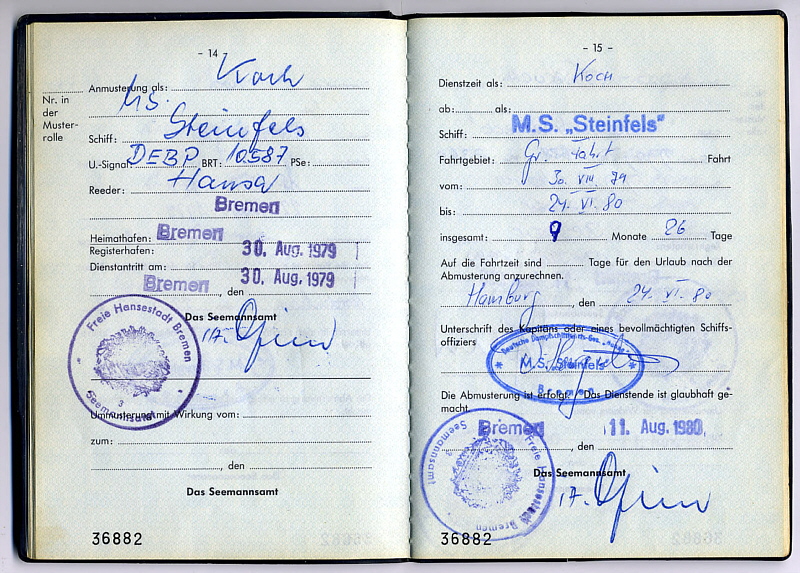 - 14 -
Anmusterung als: Koch
Nr. in
der
Muster-
rolle
MS.
Schiff: Steinfels
U.-Signal: DEBP BRT: 10587 PSe:
Reeder: Hansa
Bremen
Heimathafen: Bremen
Registerhafen:
30. Aug. 1979
Dienstantritt am: 30. Aug. 1979
Bremen, den
Das Seemannsamt
Freie Hansestadt Bremen
Seemannsamt
3
Ummusterung mit Wirkung vom:
zum:
, den
Das Seemannsamt
36882
- 15 -
Dienstzeit als: Koch
ab: als:
Schiff: M.S. „Steinfels"
Fahrtgebiet: Gr. Fahrt Fahrt
vom: 30. VIII 79
bis: 24. VI. 80
insgesamt: 9 Monate 26 Tage
Auf die Fahrtzeit sind Tage für den Urlaub nach der
Abmusterung anzurechnen.
Hamburg, den 24. VI. 80
Unterschrift des Kapitäns oder eines bevollmächtigten Schiffs-
offiziers
Deutsche Dampfschifffahrts-Ges. „Hansa"
M.S. „Steinfels"
Bremen
Die Abmusterung ist erfolgt. Das Dienstende ist glaubhaft ge-
macht.
Bremen, den 11. Aug. 1980
Das Seemannsamt
Freie Hansestadt Bremen
Seemannsamt
36882